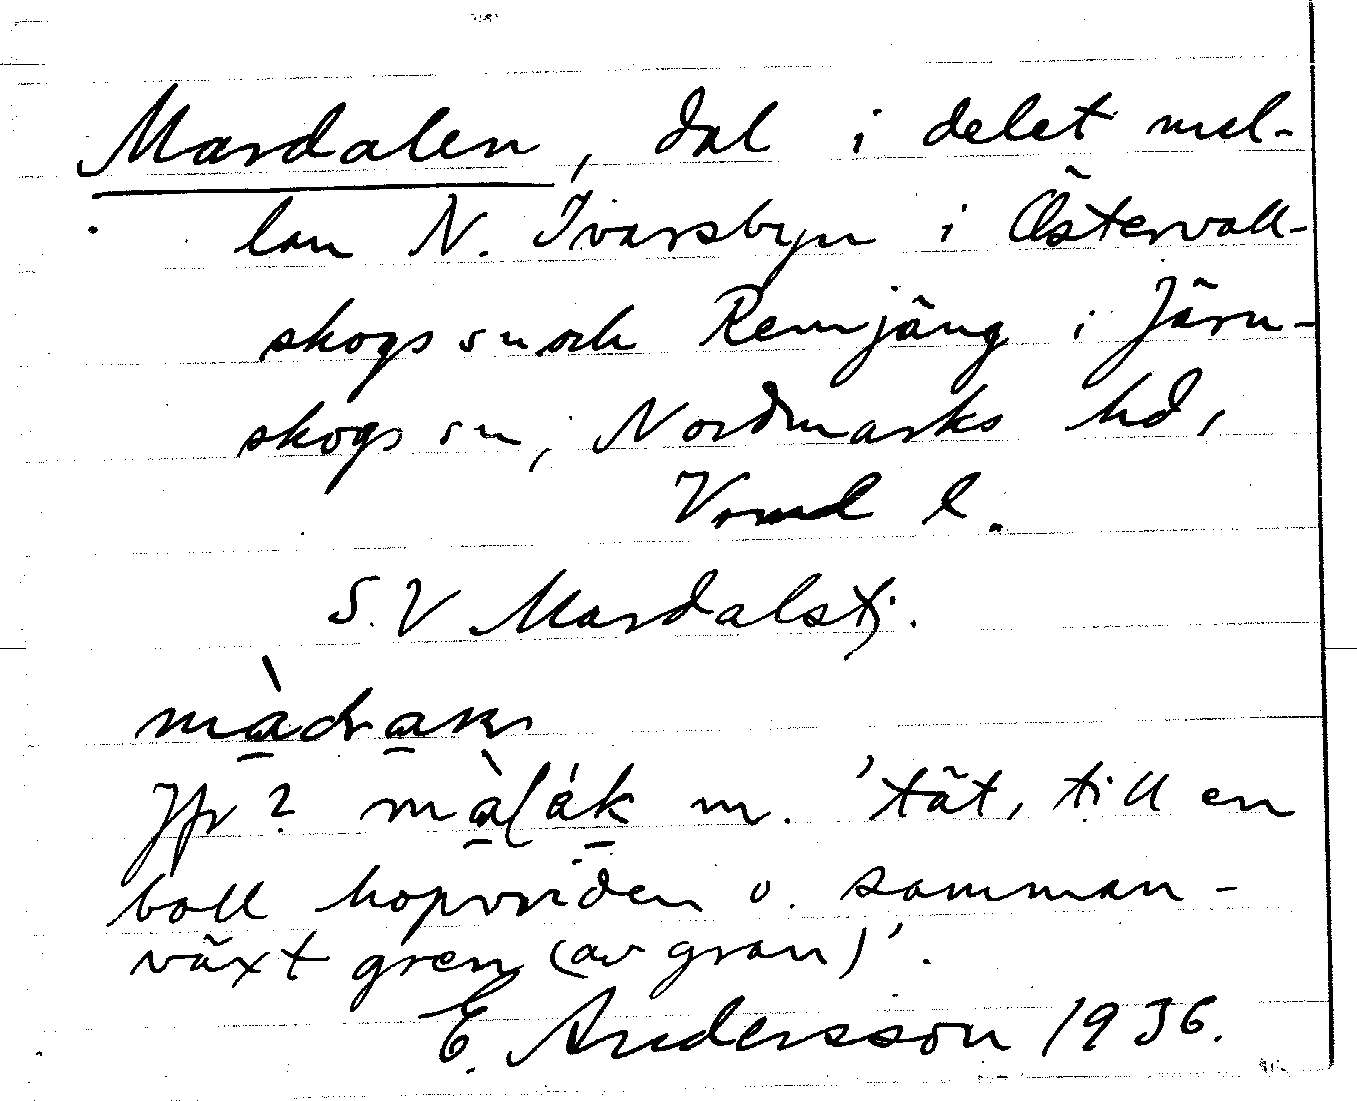 Mardalen, dal i delet mel-
lan N. Ivarsbyn i Östervall-
skogs sn och Remjäng i Järn-
skogs sn, Nordmarks hd,
Vrmd l.
S. V. Mardalstj.
Jfr? m. 'tät, till en
boll hopvriden o. samman-
växt gren (av gran)'.
E. Andersson 1936.